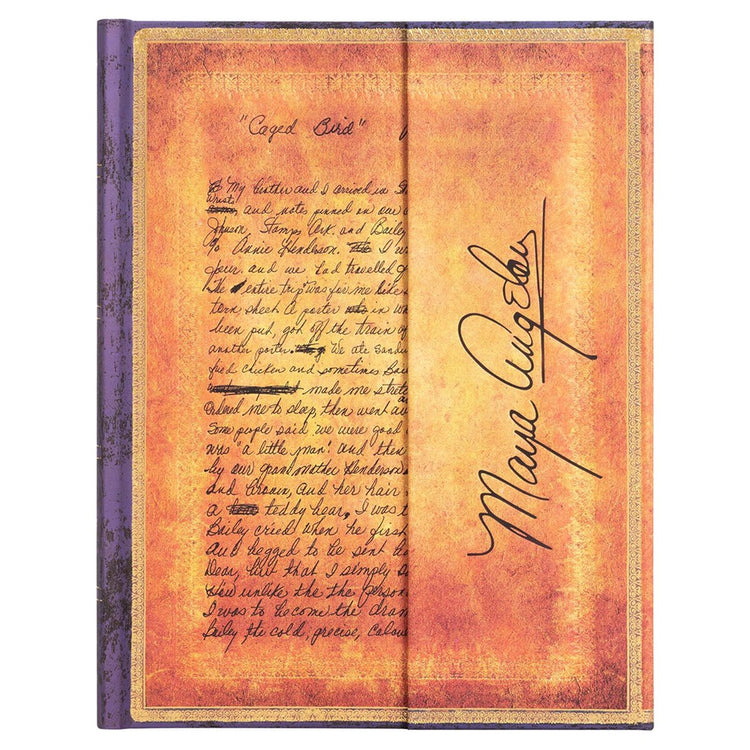 "Caged Bird"
My brother and I arrived in
wrist
and notes pinned on our
Johnson, Stamps Ark. and Bailey
c/o Annie Henderson. I w
four and we had travelled
The entire trip was for me like
tern sheet a porter in w
been put, got off the train
another porter. We ate sandw
fried chicken and sometimes Bai
made me stret
Ordered me to sleep, then went
Some people said we were good
was "a little man" and then
by our grandmother Henderson
and her hair
a teddy bear, I was t
Bailey cried when he first
and begged to be sent
Dear, but that I simply
unlike the the person
I was to become the dram
Bailey the cold, precise, calcu
Maya Angelou